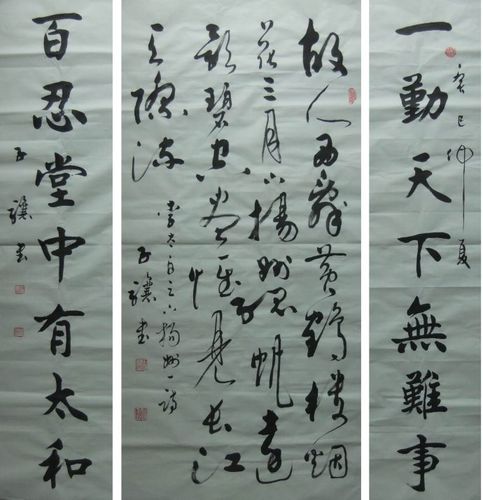 一勤天下無難事
癸巳仲夏
故人西辭黄鶴樓烟
花三月下揚州孤帆遠
影碧空盡惟見長江
天際流
李太白之下揚州一詩
子驥書
百忍堂中有太和
子驥書